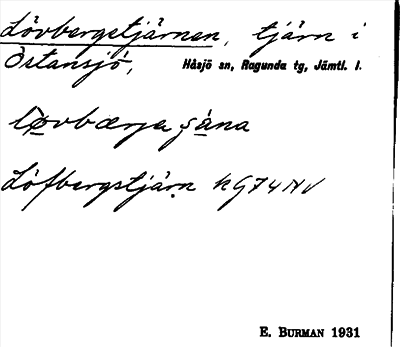 Lövbergstjärnen, tjärn i
Östansjö, Håsjö sn, Ragunda tg, Jämtl. l.
Löfbergstjärn kG74NV
E. BURMAN 1931